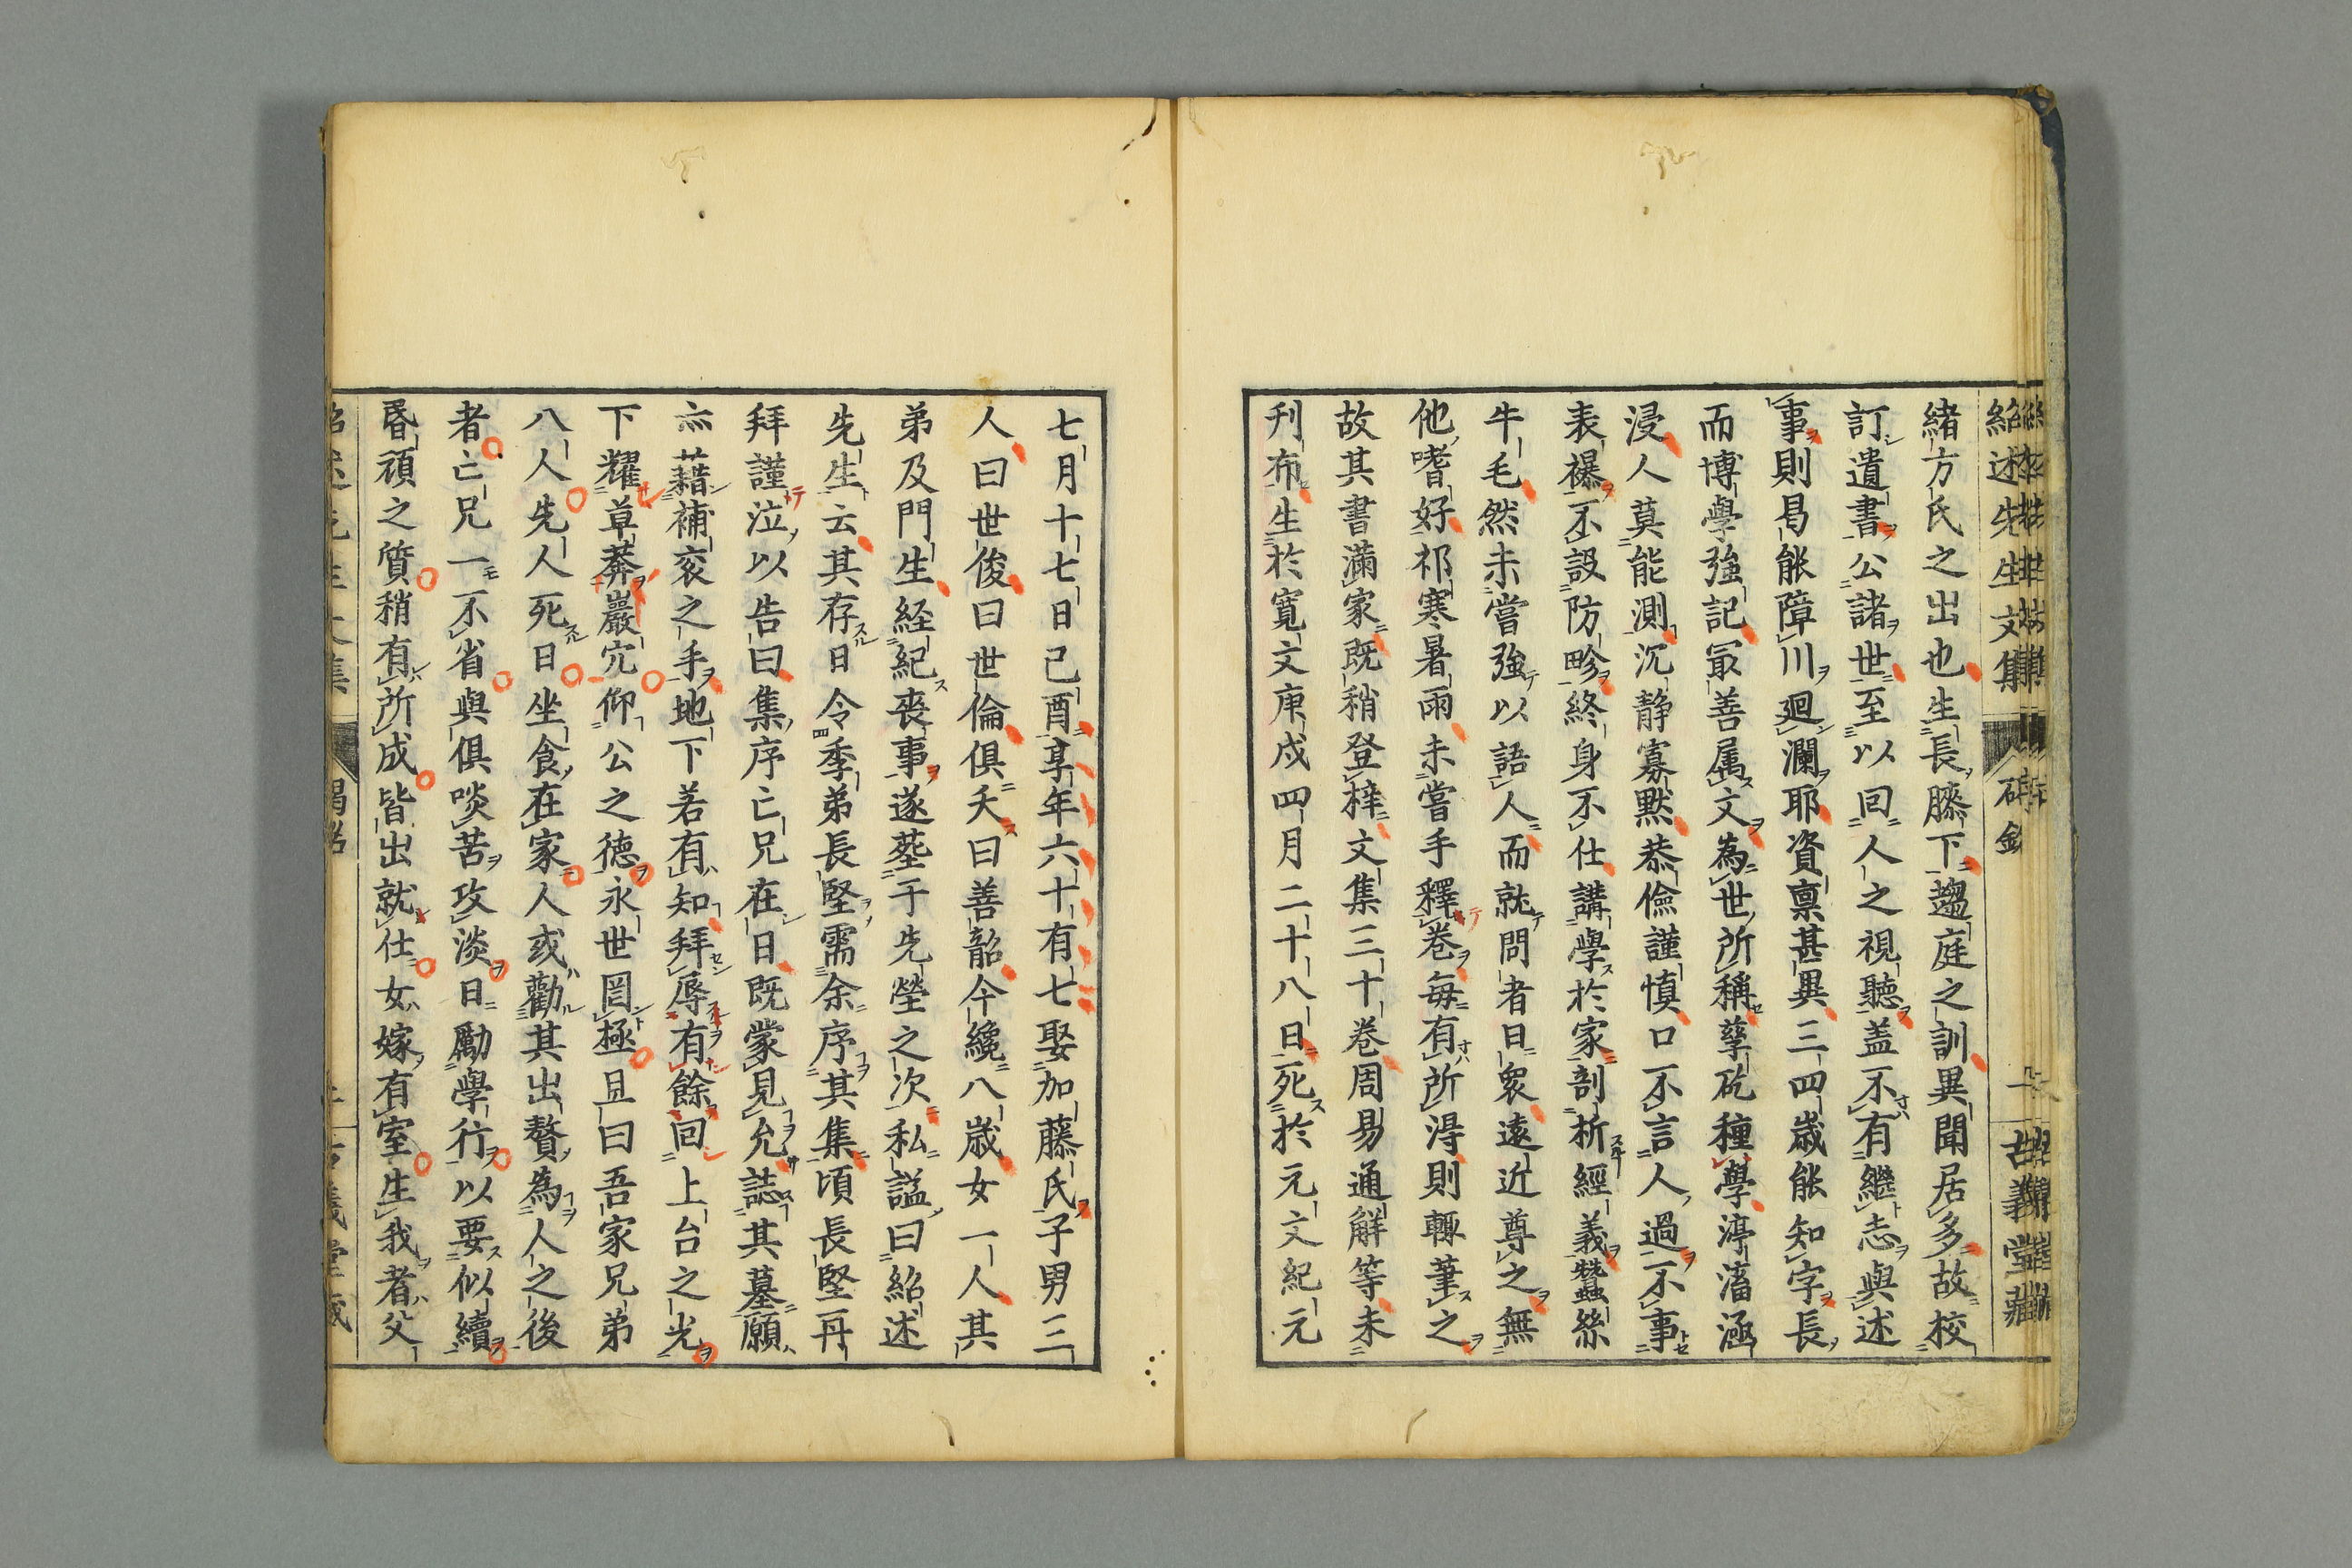 紹述先生文集 碑銘 古義堂藏
緒方氏之出也生長膝下趨庭之訓異聞居多故校
訂遺書公諸世至以回人之視聽盖不有繼志與述
事則曷能障川廻瀾耶資禀甚異三四歲能知字長
而博學強記最善属文為世所稱孳矻種學渟滀涵
浸人莫能測沉静寡黙恭儉謹慎口不言人過不事
表襮不設防畛終身不仕講學於家剖析經義蠶絲
牛毛然未嘗強以語人而就問者日衆遠近尊之無
他嗜好祁寒暑雨未嘗手釋卷每有所得則輒筆之
故其書滿家既稍登梓文集三十卷周易通解等未
刋布生於寛文庚戌四月二十八日死於元文紀元
七月十七日己酉享年六十有七娶加藤氏子男三
人曰世俊曰世倫俱夭曰善韶今纔八歲女一人其
弟及門生経紀喪事遂塟于先塋之次私謚曰紹述
先生云其存日令季弟長堅需余序其集頃長堅再
拜謹泣以告曰集序亡兄在日既蒙見允誌其墓願
亦藉補衮之手地下若有知拜辱有餘回上台之光
下耀草莽巖穴仰公之徳永世罔極且曰吾家兄弟
八人先人死日坐食在家人或勸其出贅為人之後
者亡兄一不省與俱啖苦攻淡日勵學行以要似續
昏頑之質稍有所成皆出就仕女嫁有室生我者父